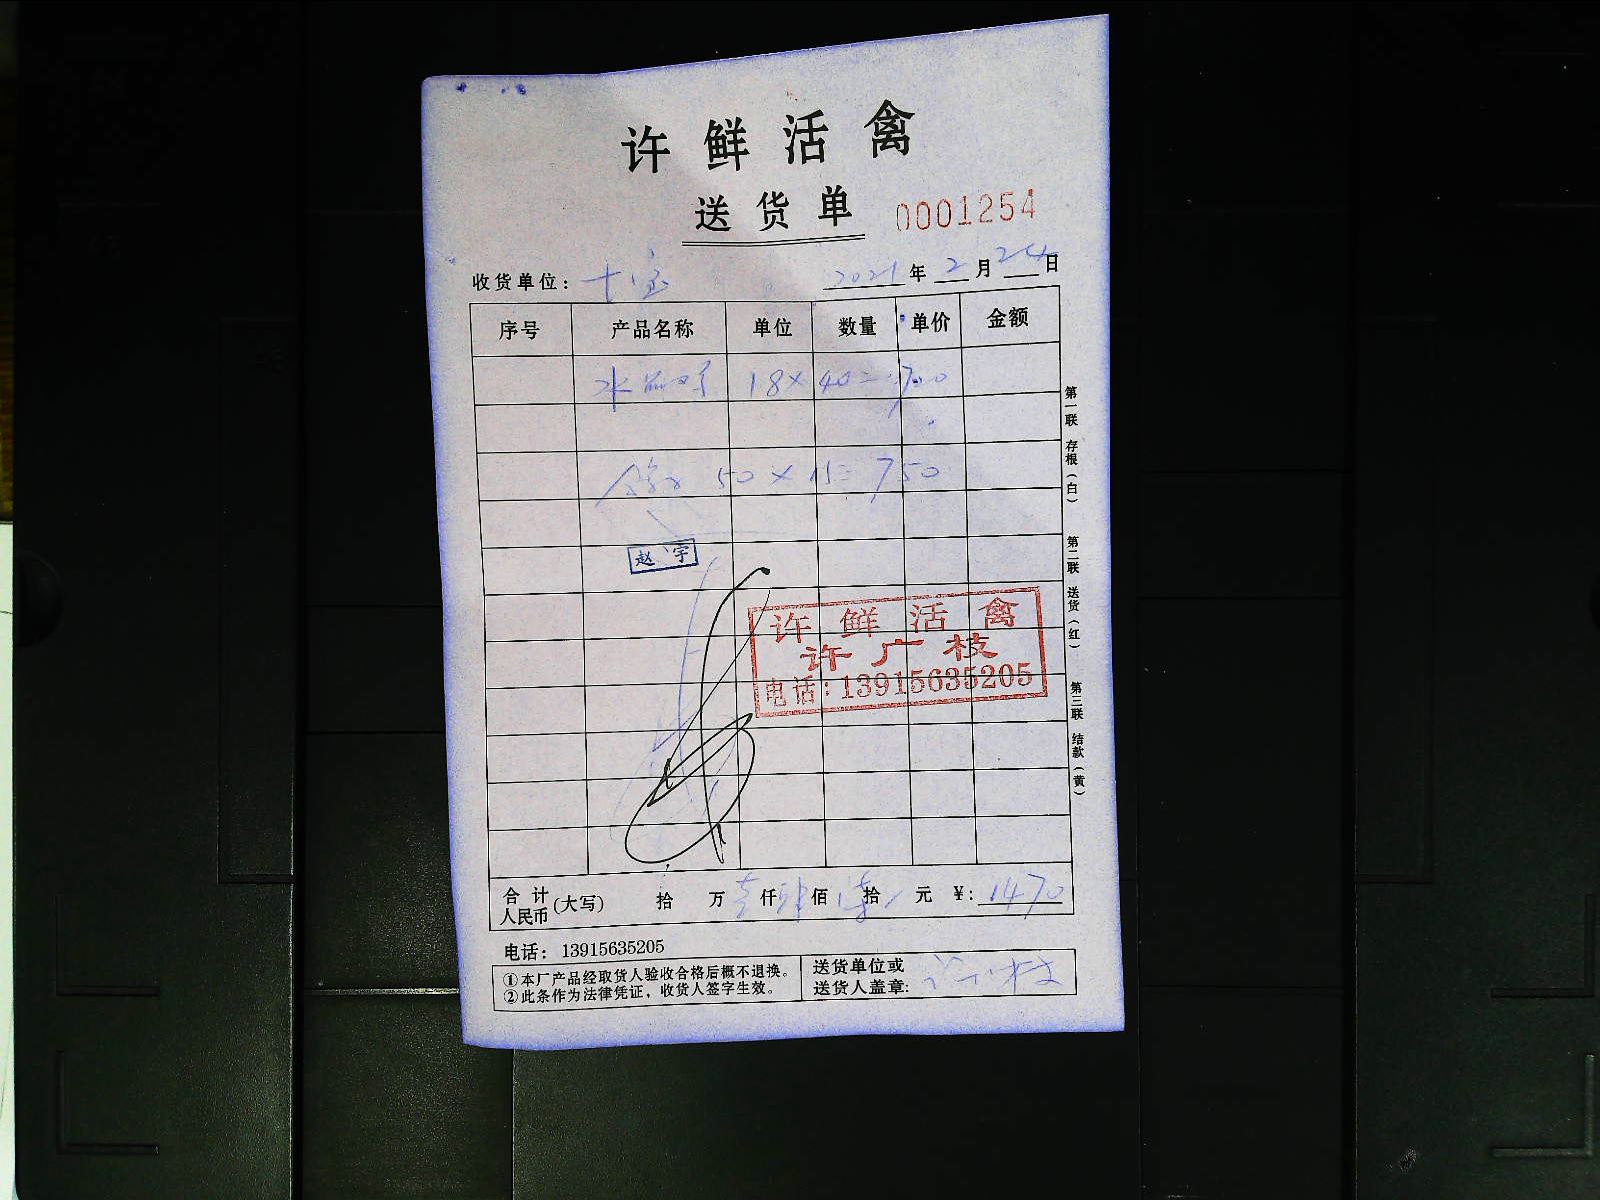 许鲜活禽
送货单 0001254
收货单位: 十宝 2021年2月24日
序号 产品名称 单位 数量 单价 金额
18×40=720
50×15=750
赵宇
许鲜活禽
许广枝
电话:13915635205
第一联 存根(白)
第二联 送货(红)
第三联 结款(黄)
合计人民币(大写) 拾 万壹仟肆佰柒拾 元 ¥: 1470
电话: 13915635205
①本厂产品经取货人验收合格后概不退换。
②此条作为法律凭证，收货人签字生效。
送货单位或
送货人盖章: 许广枝